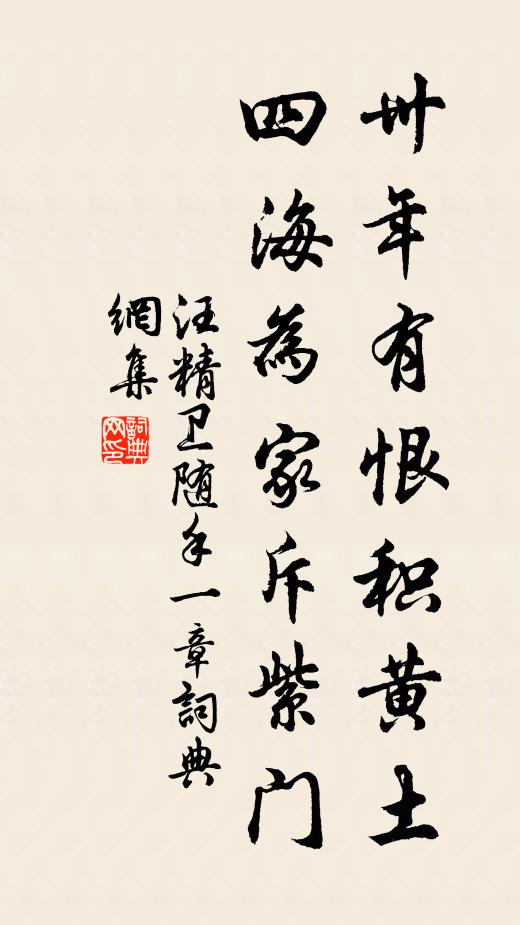 卅年有恨积黄土
四海為家斥紫门
汪精卫随手一章詞典
網集
詞典
网印